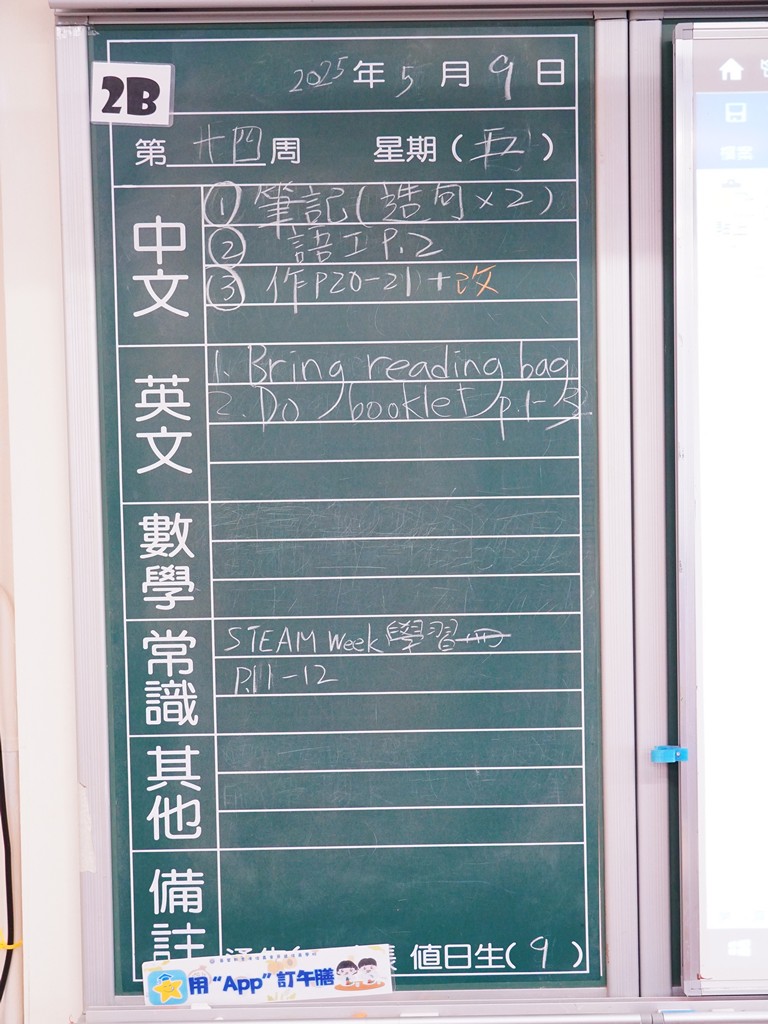 2B
2025年5月9日
第廿四周 星期(五)
中文
① 筆記(造句×2)
② 語工P.2
③ 作P20-21+改
英文
1. Bring reading bag
2. Do booklet p.1-3
數學
常識
STEAM Week 學習冊
P.11-12
其他
備註
值日生(9)
用“App”訂午膳